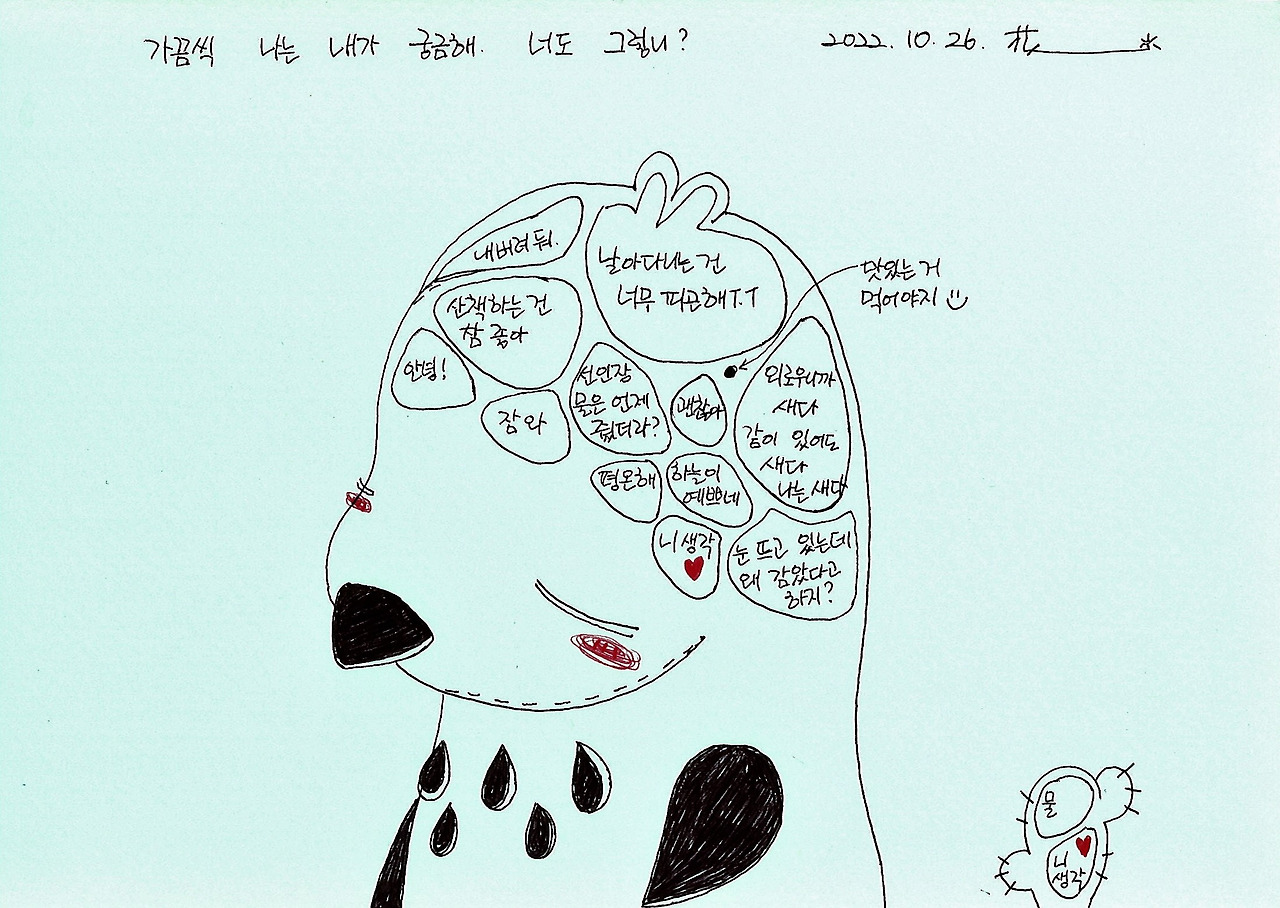 가끔씩 나는 내가 궁금해. 너도 그렇니?
2022. 10. 26. 花
내버려 둬.
날아다니는 건
너무 피곤해T.T
맛있는 거
먹어야지
산책하는 건
참 좋아
안녕!
잠 와
선인장
물은 언제
줬더라?
괜찮아
외로우니까
새다
감이 있어도
새다
나는 새다
평온해
하늘이
예쁘네
니 생각
눈 뜨고 있는데
왜 감았다고
하지?
물
니
생각